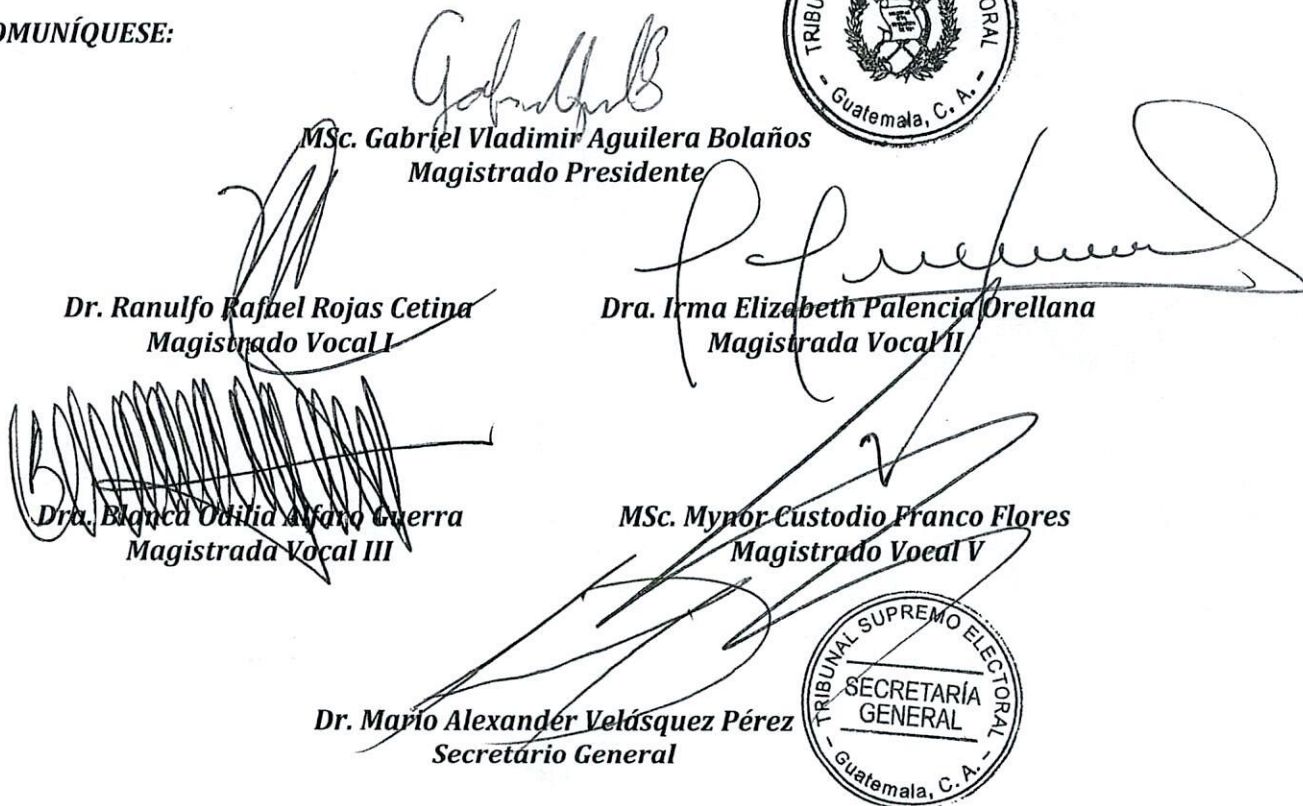 OMUNÍQUESE:
TRIBU
ORAL
- Guatemala, C. A. -
MSc. Gabriel Vladimir Aguilera Bolaños
Magistrado Presidente
Dr. Ranulfo Rafael Rojas Cetina
Magistrado Vocal I
Dra. Irma Elizabeth Palencia Orellana
Magistrada Vocal II
Dra. Blanca Odilia Alfaro Guerra
Magistrada Vocal III
MSc. Mynor Custodio Franco Flores
Magistrado Vocal V
Dr. Mario Alexander Velásquez Pérez
Secretario General
TRIBUNAL SUPREMO ELECTORAL
SECRETARÍA
GENERAL
- Guatemala, C. A. -